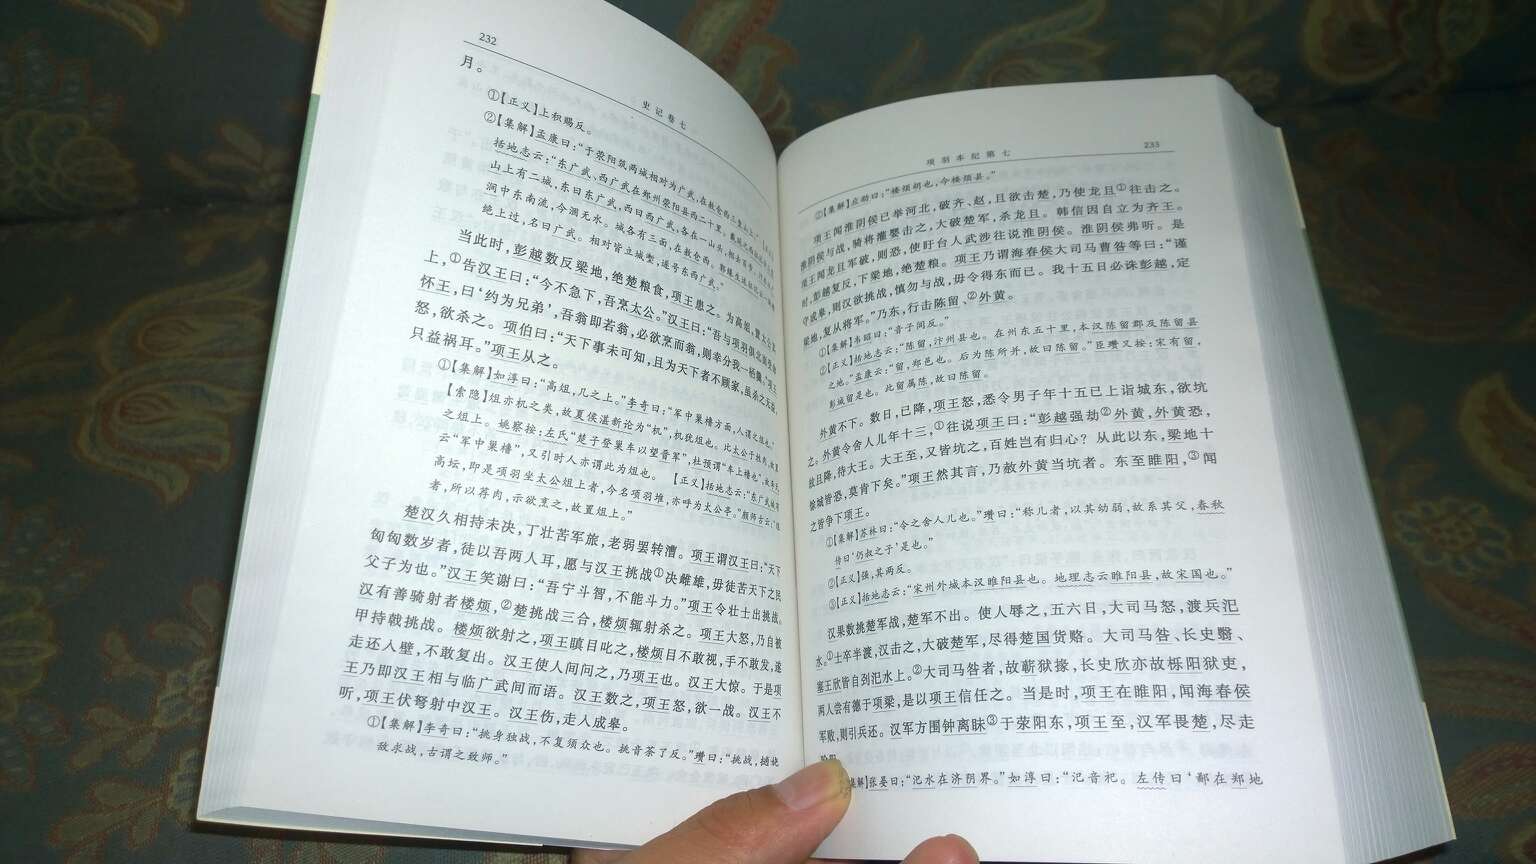 232
史记卷七
月。
①【正义】上积赐反。
②【集解】孟康曰：“于荥阳筑两城相对为广武，在敖仓西三皇山上。”
括地志云：“东广武、西广武在郑州荥阳县西二十里。戴延之
山上有二城，东曰东广武，西曰西广武，各在一山头，相去
涧中东南流，今涸无水。城各有三面，在敖仓西。郭缘生述征记云
绝上过，名曰广武。相对皆立城堑，遂号东西广武。”
当此时，彭越数反梁地，绝楚粮食，项王患之。为高俎，置太公其
上，①告汉王曰：“今不急下，吾烹太公。”汉王曰：“吾与项羽俱北面受命
怀王，曰‘约为兄弟’，吾翁即若翁，必欲烹而翁，则幸分我一桮羹。”项王
怒，欲杀之。项伯曰：“天下事未可知，且为天下者不顾家，虽杀之无益，
只益祸耳。”项王从之。
①【集解】如淳曰：“高俎，几之上。”李奇曰：“军中巢橹方面，人谓之俎也。”
【索隐】俎亦机之类，故夏侯湛新论为“机”，机犹俎也。比太公于牲肉，故置
之俎上。姚察按：左氏“楚子登巢车以望晋军”，杜预谓“车上橹也”，故李氏
云“军中巢橹”，又引时人亦谓此为俎也。 【正义】括地志云：“东广武城有
高坛，即是项羽坐太公俎上者，今名项羽堆，亦呼为太公亭。”颜师古云：“俎
者，所以荐肉，示欲烹之，故置俎上。”
楚汉久相持未决，丁壮苦军旅，老弱罢转漕。项王谓汉王曰：“天下
匈匈数岁者，徒以吾两人耳，愿与汉王挑战①决雌雄，毋徒苦天下之民
父子为也。”汉王笑谢曰：“吾宁斗智，不能斗力。”项王令壮士出挑战。
汉有善骑射者楼烦，②楚挑战三合，楼烦辄射杀之。项王大怒，乃自被
甲持戟挑战。楼烦欲射之，项王瞋目叱之，楼烦目不敢视，手不敢发，遂
走还入壁，不敢复出。汉王使人间问之，乃项王也。汉王大惊。于是项
王乃即汉王相与临广武间而语。汉王数之，项王怒，欲一战。汉王不
听，项王伏弩射中汉王。汉王伤，走入成皋。
①【集解】李奇曰：“挑身独战，不复须众也。挑音荼了反。”瓒曰：“挑战，擿娆
敌求战，古谓之致师。”
项羽本纪第七
233
②【集解】应劭曰：“楼烦胡也，今楼烦县。”
项王闻淮阴侯已举河北，破齐、赵，且欲击楚，乃使龙且①往击之。
淮阴侯与战，骑将灌婴击之，大破楚军，杀龙且。韩信因自立为齐王。
项王闻龙且军破，则恐，使盱台人武涉往说淮阴侯。淮阴侯弗听。是
时，彭越复反，下梁地，绝楚粮。项王乃谓海春侯大司马曹咎等曰：“谨
守成皋，则汉欲挑战，慎勿与战，毋令得东而已。我十五日必诛彭越，定
梁地，复从将军。”乃东，行击陈留、②外黄。
①【集解】韦昭曰：“音子闾反。”
②【正义】括地志云：“陈留，汴州县也。在州东五十里，本汉陈留郡及陈留县
之地。”孟康云：“留，郑邑也。后为陈所并，故曰陈留。”臣瓒又按：宋有留，
彭城留是也。此留属陈，故曰陈留。
外黄不下。数日，已降，项王怒，悉令男子年十五已上诣城东，欲坑
之。外黄令舍人儿年十三，①往说项王曰：“彭越强劫②外黄，外黄恐，
故且降，待大王。大王至，又皆坑之，百姓岂有归心？从此以东，梁地十
馀城皆恐，莫肯下矣。”项王然其言，乃赦外黄当坑者。东至睢阳，③闻
之皆争下项王。
①【集解】苏林曰：“令之舍人儿也。”瓒曰：“称儿者，以其幼弱，故系其父，春秋
传曰‘仍叔之子’是也。”
②【正义】强，其两反。
③【正义】括地志云：“宋州外城本汉睢阳县也。地理志云睢阳县，故宋国也。”
汉果数挑楚军战，楚军不出。使人辱之，五六日，大司马怒，渡兵汜
水。①士卒半渡，汉击之，大破楚军，尽得楚国货赂。大司马咎、长史翳、
塞王欣皆自刭汜水上。②大司马咎者，故蕲狱掾，长史欣亦故栎阳狱吏，
两人尝有德于项梁，是以项王信任之。当是时，项王在睢阳，闻海春侯
军败，则引兵还。汉军方围钟离眛③于荥阳东，项王至，汉军畏楚，尽走
险阻。
集解】张晏曰：“汜水在济阴界。”如淳曰：“汜音祀。左传曰‘鄙在郑地